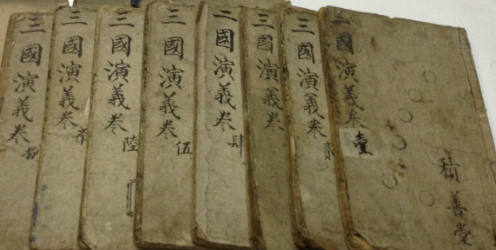 積善堂
三國演義卷壹
三國演義卷貳
三國演義卷
三國演義卷肆
三國演義卷伍
三國演義卷陸
三國演義卷柒
三國演義卷